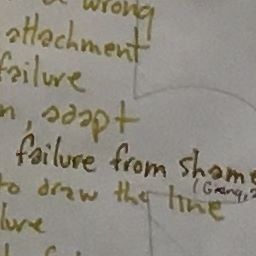 wrong
attachment
failure
n, adapt
failure from shame
to draw the line
lure